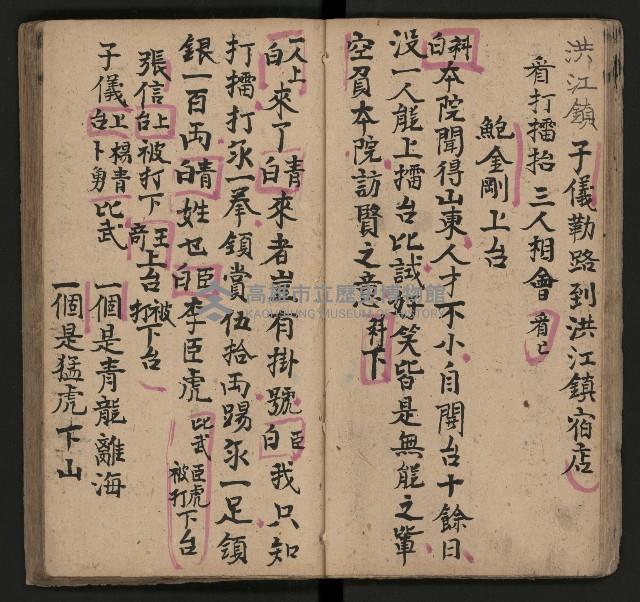 洪江鎮 子儀勒路到洪江鎮宿店
看打擂抬 三人相會 看己
鮑金剛上台
科白 本院聞得山東人才不小自開台十餘日
沒一人能上擂台比試好笑皆是無能之輩
空負本院訪賢之意 科下
一人上 白來了 青白 來者豈有掛號 臣白 我只知
打擂打永一拳領賞伍拾両踢永一足領
銀一百両 青白 姓乜 臣白 李臣虎 比武 臣虎被打下台
張信上台被打下 王奇上台 被打下台
子儀上台 楊青卜勇 比武 一個是青龍離海
一個是猛虎下山
高雄市立歷史博物館
KAOHSIUNG MUSEUM OF HISTORY